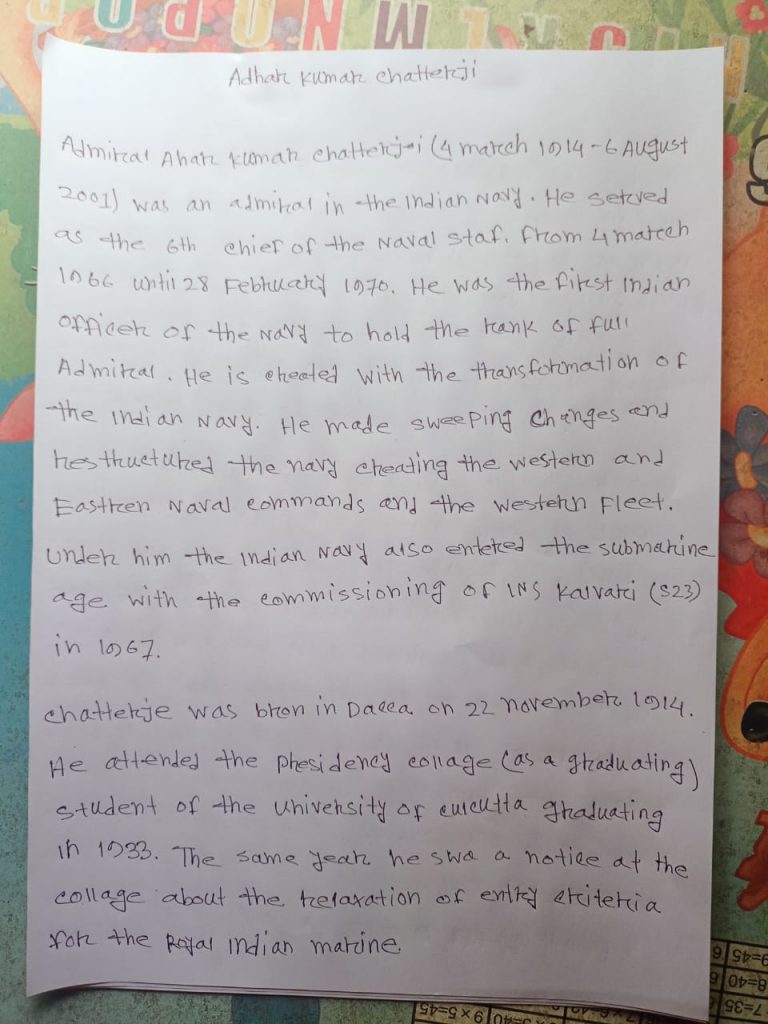 M N O P Q
Adhar kumar chatterji
Admiral Ahar kumar chatterj-i (4 march 1914 - 6 August
2001) was an admiral in the Indian Navy. He served
as the 6th chief of the Naval staf. From 4 march
1966 until 28 February 1970. He was the first Indian
officer of the Navy to hold the rank of full
Admiral. He is created with the transformation of
the Indian Navy. He made sweeping changes and
restructured the navy creating the western and
Eastren Naval commands and the western Fleet.
Under him the Indian Navy also entered the submarine
age with the commissioning of INS Kalvari (S23)
in 1967.
chatterje was bron in Dacca on 22 november 1914.
He attended the presidency collage (as a graduating)
student of the university of culcutta graduating
in 1933. The same year he swa a notice at the
collage about the relaxation of entry criteria
for the Royal Indian marine.
9=45
8=40
7=35
9×5=45